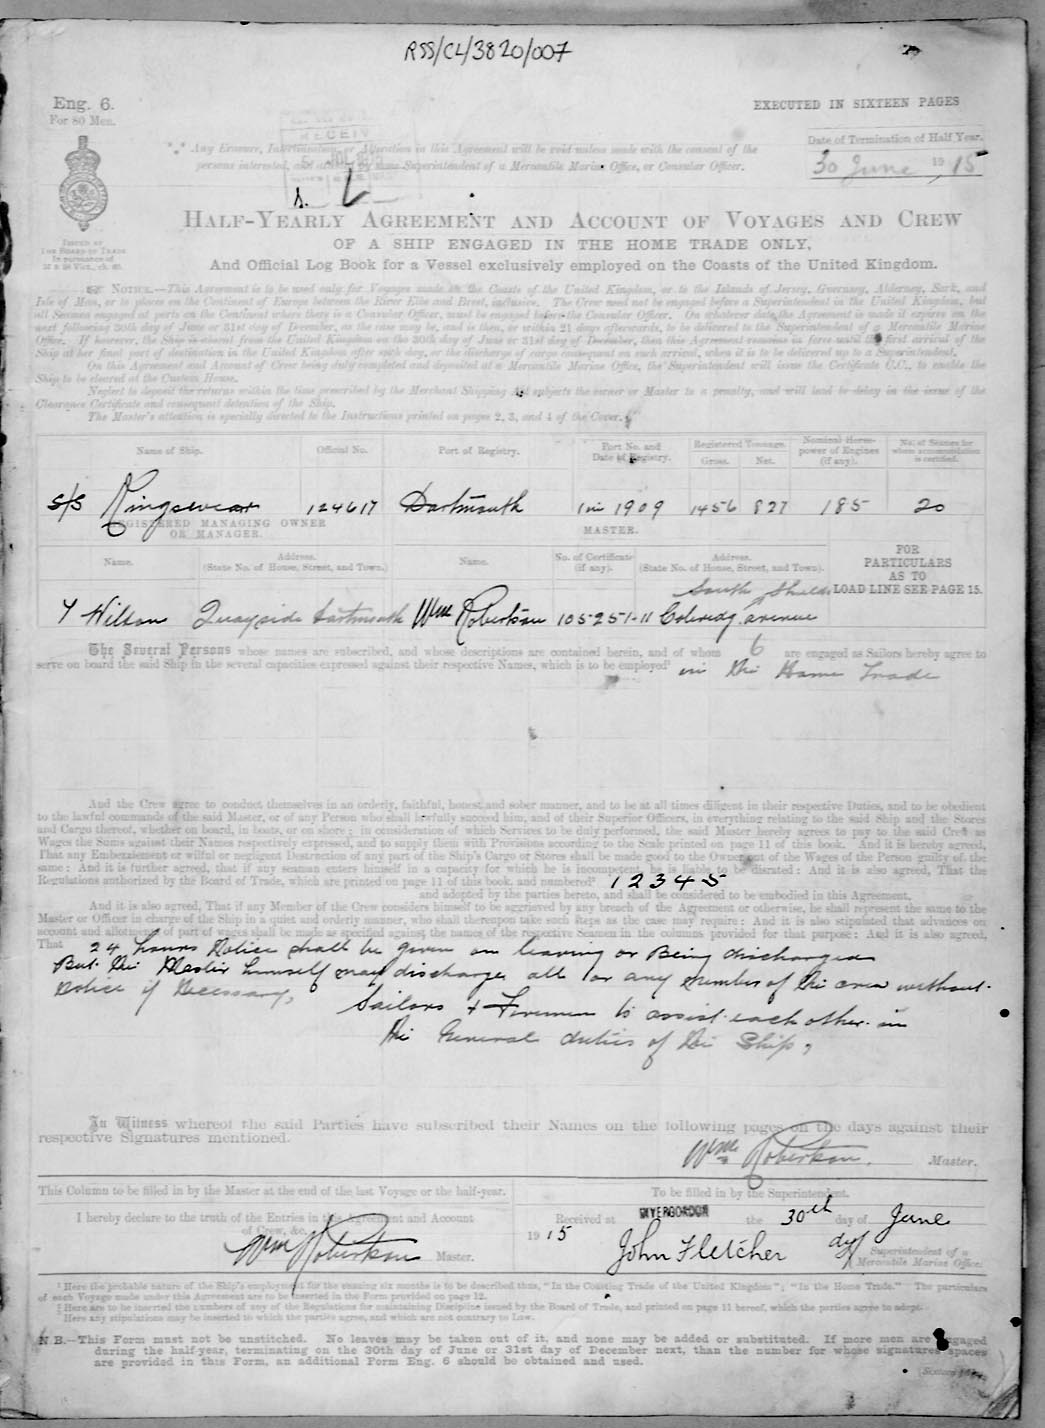 RSS/CL/3820/007
Eng. 6.
For 80 Men.
EXECUTED IN SIXTEEN PAGES
RECEIV
Date of Termination of Half Year.
30 June 1915
Any Erasure, Interlineation, or Alteration in this Agreement will be void unless made with the consent of the
persons interested, and attested by some Superintendent of a Mercantile Marine Office, or Consular Officer.
HALF-YEARLY AGREEMENT AND ACCOUNT OF VOYAGES AND CREW
OF A SHIP ENGAGED IN THE HOME TRADE ONLY,
And Official Log Book for a Vessel exclusively employed on the Coasts of the United Kingdom.
ISSUED BY
THE BOARD OF TRADE
In pursuance of
NOTICE.—This Agreement is to be used only for Voyages made on the Coasts of the United Kingdom, or to the Islands of Jersey, Guernsey, Alderney, Sark, and
Isle of Man, or to places on the Continent of Europe between the River Elbe and Brest, inclusive. The Crew need not be engaged before a Superintendent in the United Kingdom, but
all Seamen engaged at ports on the Continent where there is a Consular Officer, must be engaged before the Consular Officer. On whatever date the Agreement is made it expires on the
next following 30th day of June or 31st day of December, as the case may be, and is then, or within 21 days afterwards, to be delivered to the Superintendent of a Mercantile Marine
Office. If however, the Ship is absent from the United Kingdom on the 30th day of June or 31st day of December, then this Agreement remains in force until the first arrival of the
Ship at her final port of destination in the United Kingdom after such day, or the discharge of cargo consequent on such arrival, when it is to be delivered up to a Superintendent.
On this Agreement and Account of Crew being duly completed and deposited at a Mercantile Marine Office, the Superintendent will issue the Certificate C.C., to enable the
Ship to be cleared at the Custom House.
Neglect to deposit the returns within the time prescribed by the Merchant Shipping Act subjects the owner or Master to a penalty, and will lead to delay in the issue of the
Clearance Certificate and consequent detention of the Ship.
The Master's attention is specially directed to the Instructions printed on pages 2, 3, and 4 of the Cover.
Name of Ship. Official No. Port of Registry. Port No. and Date of Registry. Registered Tonnage. Gross. Net. Nominal Horse-power of Engines (if any). No. of Seamen for whom accommodation is certified.
S/S Kingswear 124617 Dartmouth 1 in 1909 1456 827 185 20
REGISTERED MANAGING OWNER OR MANAGER. MASTER.
Name. Address. (State No. of House, Street, and Town.) Name. No. of Certificate (if any). Address. (State No. of House, Street, and Town).
FOR PARTICULARS AS TO LOAD LINE SEE PAGE 15.
South Shields
Y Wilson Quayside Dartmouth Wm Robertson 105251-11 Coleredg avenue
The Several Persons whose names are subscribed, and whose descriptions are contained herein, and of whom 6 are engaged as Sailors hereby agree to
serve on board the said Ship in the several capacities expressed against their respective Names, which is to be employed¹ in the Home Trade
And the Crew agree to conduct themselves in an orderly, faithful, honest, and sober manner, and to be at all times diligent in their respective Duties, and to be obedient
to the lawful commands of the said Master, or of any Person who shall lawfully succeed him, and of their Superior Officers, in everything relating to the said Ship and the Stores
and Cargo thereof, whether on board, in boats, or on shore; in consideration of which Services to be duly performed, the said Master hereby agrees to pay to the said Crew as
Wages the Sums against their Names respectively expressed, and to supply them with Provisions according to the Scale printed on page 11 of this book. And it is hereby agreed,
That any Embezzlement or wilful or negligent Destruction of any part of the Ship's Cargo or Stores shall be made good to the Owner out of the Wages of the Person guilty of the
same: And it is further agreed, that if any seaman enters himself in a capacity for which he is incompetent he is liable to be disrated: And it is also agreed, That the
Regulations authorized by the Board of Trade, which are printed on page 11 of this book, and numbered² 1 2 3 4 5
and adopted by the parties hereto, and shall be considered to be embodied in this Agreement.
And it is also agreed, That if any Member of the Crew considers himself to be aggrieved by any breach of the Agreement or otherwise, he shall represent the same to the
Master or Officer in charge of the Ship in a quiet and orderly manner, who shall thereupon take such steps as the case may require: And it is also stipulated that advances on
account and allotment of part of wages shall be made as specified against the names of the respective Seamen in the columns provided for that purpose: And it is also agreed,
That 24 hours Notice shall be given on leaving or Being discharged
But the Master himself may discharge all or any member of the crew without
Notice if Necessary, Sailors + Firemen to assist each other in
the General duties of the Ship,
In Witness whereof the said Parties have subscribed their Names on the following pages on the days against their
respective Signatures mentioned.
Wm Robertson. Master.
This Column to be filled in by the Master at the end of the last Voyage or the half-year.
I hereby declare to the truth of the Entries in this Agreement and Account
of Crew, &c.
Wm Robertson Master.
To be filled in by the Superintendent.
Received at INVERGORDON the 30th day of June
1915
John Fletcher dy/ Superintendent of a
Mercantile Marine Office.
¹ Here the probable nature of the Ship's employment for the ensuing six months is to be described thus, "In the Coasting Trade of the United Kingdom"; "In the Home Trade." The particulars
of each Voyage made under this Agreement are to be inserted in the Form provided on page 12.
² Here are to be inserted the numbers of any of the Regulations for maintaining Discipline issued by the Board of Trade, and printed on page 11 hereof, which the parties agree to adopt.
Here any stipulations may be inserted to which the parties agree, and which are not contrary to Law.
N B.—This Form must not be unstitched. No leaves may be taken out of it, and none may be added or substituted. If more men are engaged
during the half-year, terminating on the 30th day of June or 31st day of December next, than the number for whose signatures spaces
are provided in this Form, an additional Form Eng. 6 should be obtained and used.